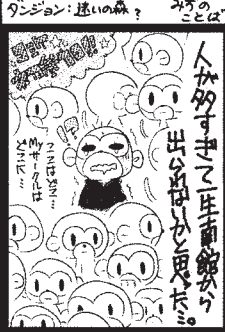 ダンジョン:迷いの森?
みずの
ことば
人が多すぎて一生南館から
出られないかと思った…。
!?
ここはどこ…
Myサークルは
どこだ…